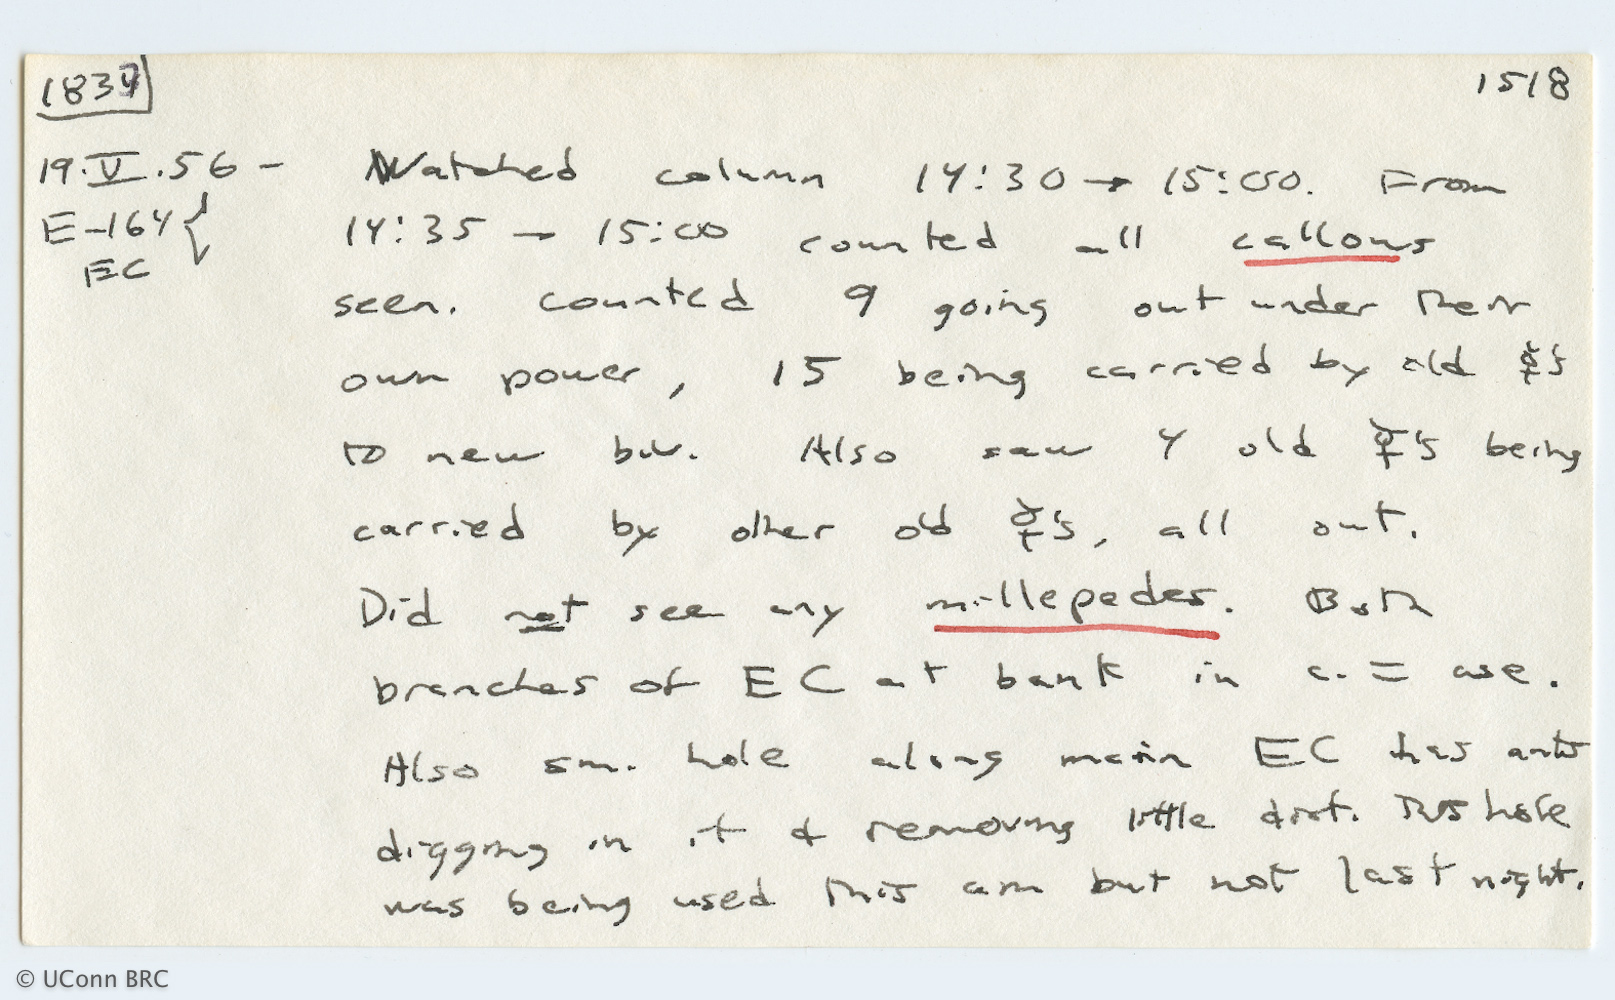 1518
19.V.56 - Watched column 14:30 → 15:00. From
E-164 { 14:35 → 15:00 counted all callows
EC
seen. Counted 9 going out under their
own power, 15 being carried by old ☿'s
to new biv. Also saw 4 old ☿'s being
carried by other old ☿'s, all out.
Did not see any millepedes. Both
branches of EC at bank in c. = use.
Also sm. hole along main EC has ants
digging in it & removing little dirt. This hole
was being used this am but not last night.
© UConn BRC